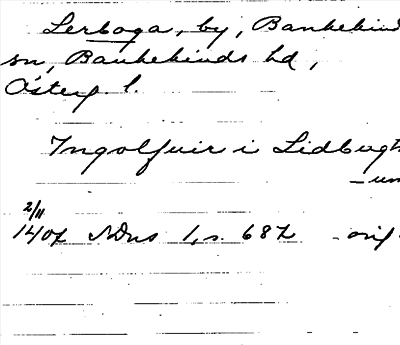 Lerboga, by, Bankekind
sn, Bankekinds hd,
Österg. l.
Ingolfuir i Lidbugh
- un
2/11
1407 SDns 1, s. 687 - orig.